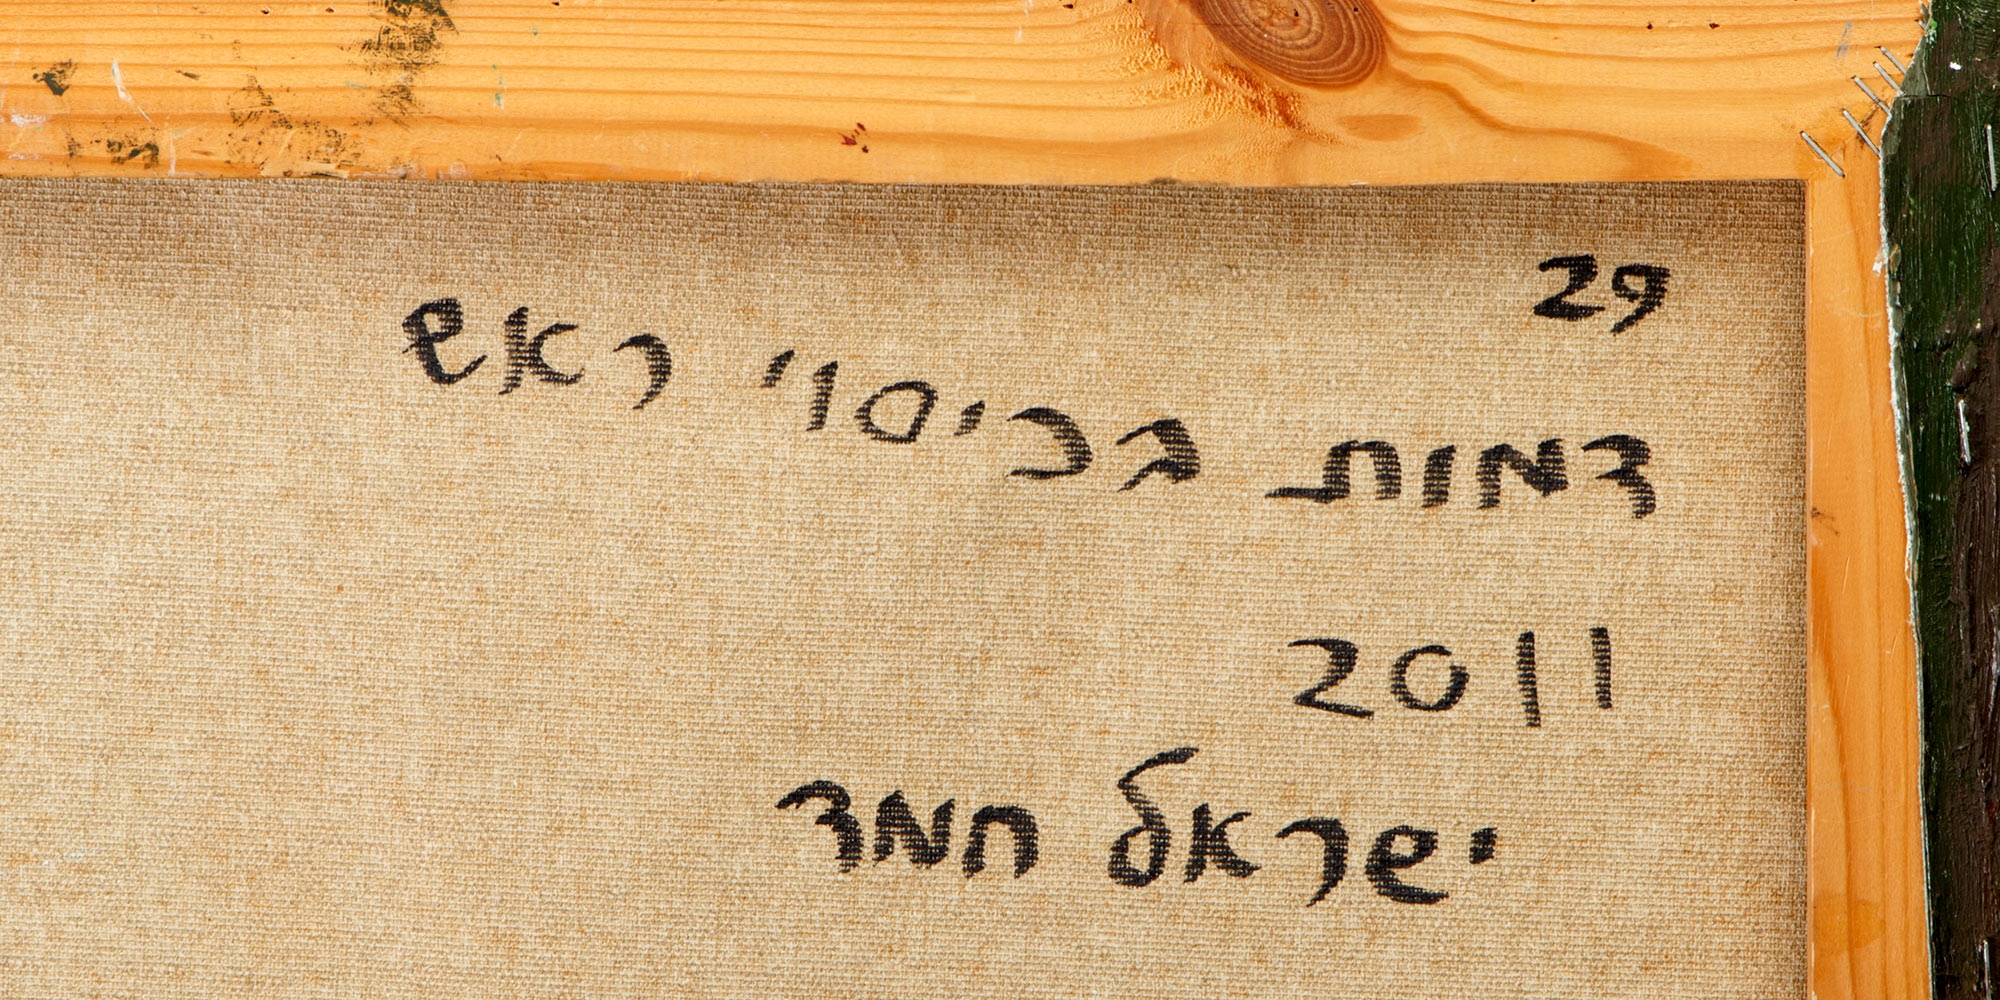 29
דמות בכיסוי ראש
2011
ישראל חמד